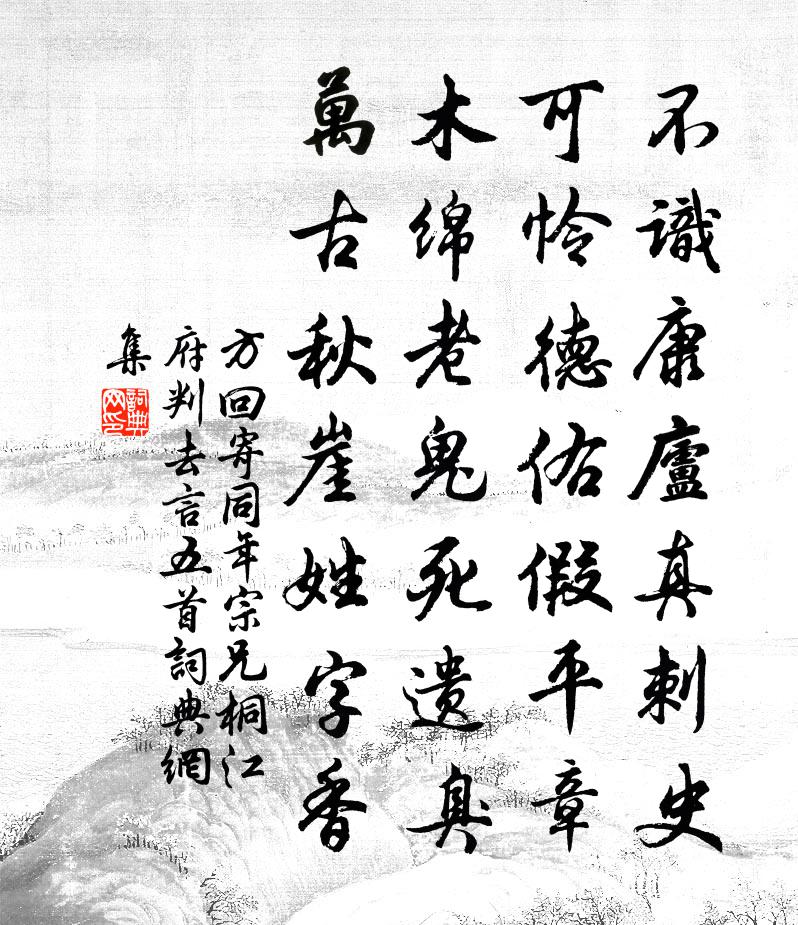 不識康廬真刺史
可怜德佑假平章
木绵老鬼死遗臭
萬古秋崖姓字香
方回寄同年宗兄桐江
府判去言五首詞典網
集
詞典網印